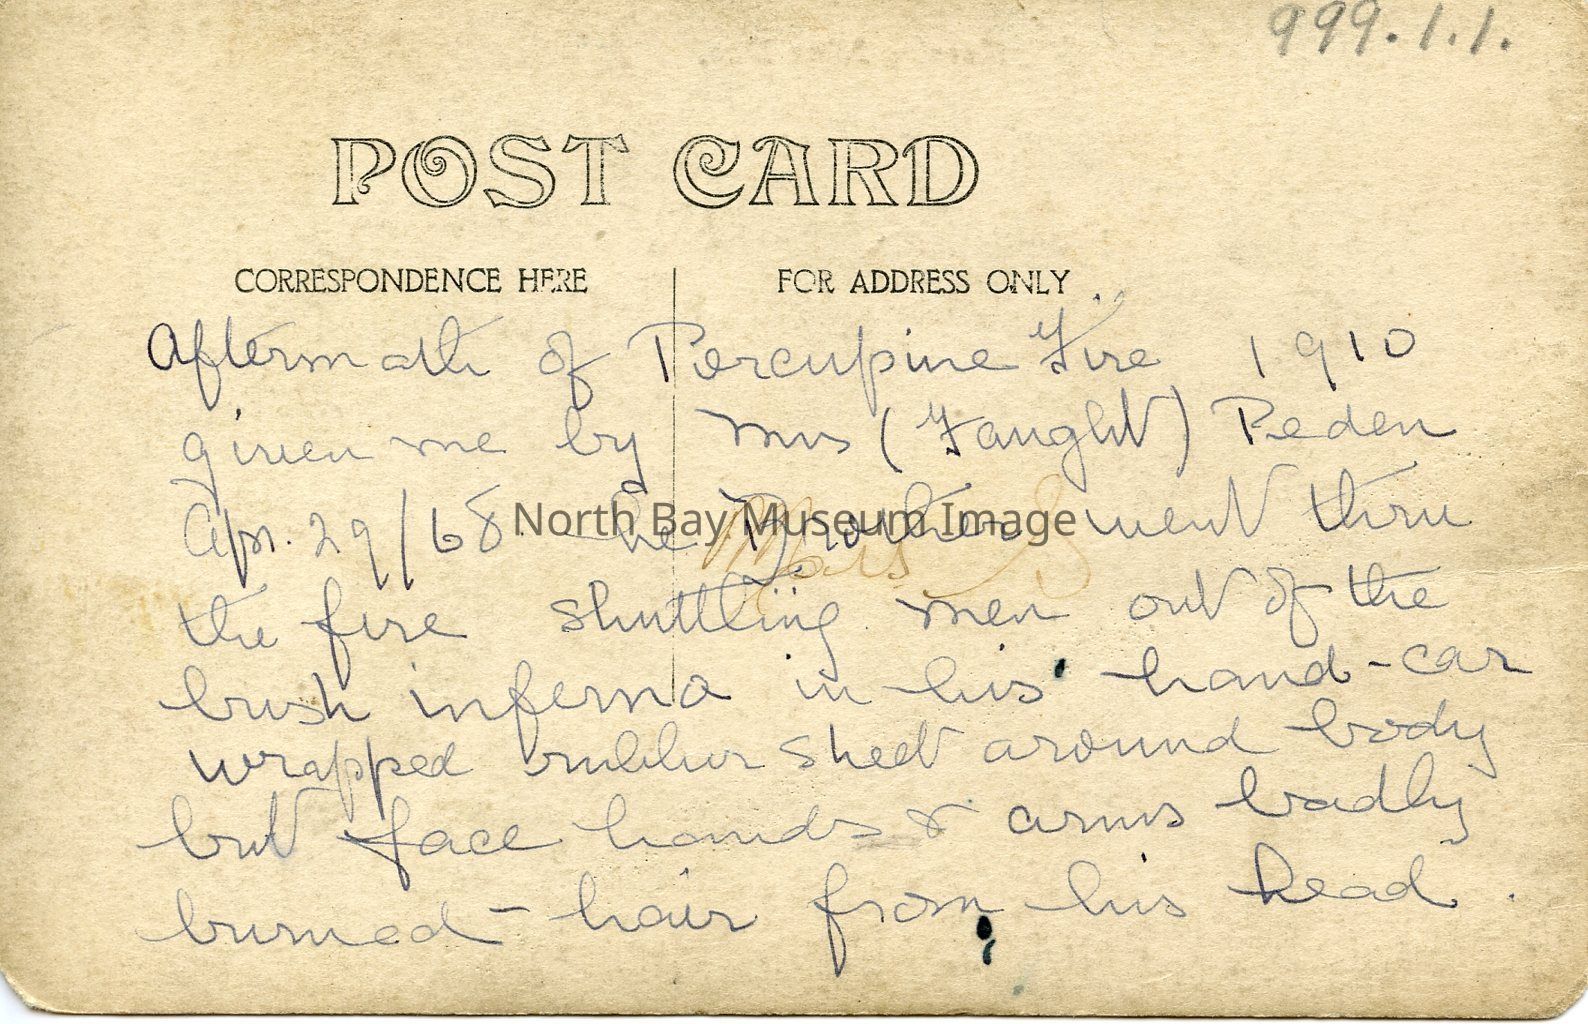 999.1.1.
POST CARD
CORRESPONDENCE HERE
FOR ADDRESS ONLY
Aftermath of Porcupine Fire 1910
given me by Mrs (Faught) Peden
Apr. 29/68 he went thru
North Bay Museum Image
the fire shuttling men out of the
brush inferno in his hand-car
wrapped rubber sheet around body
but face hands & arms badly
burned - hair from his head.